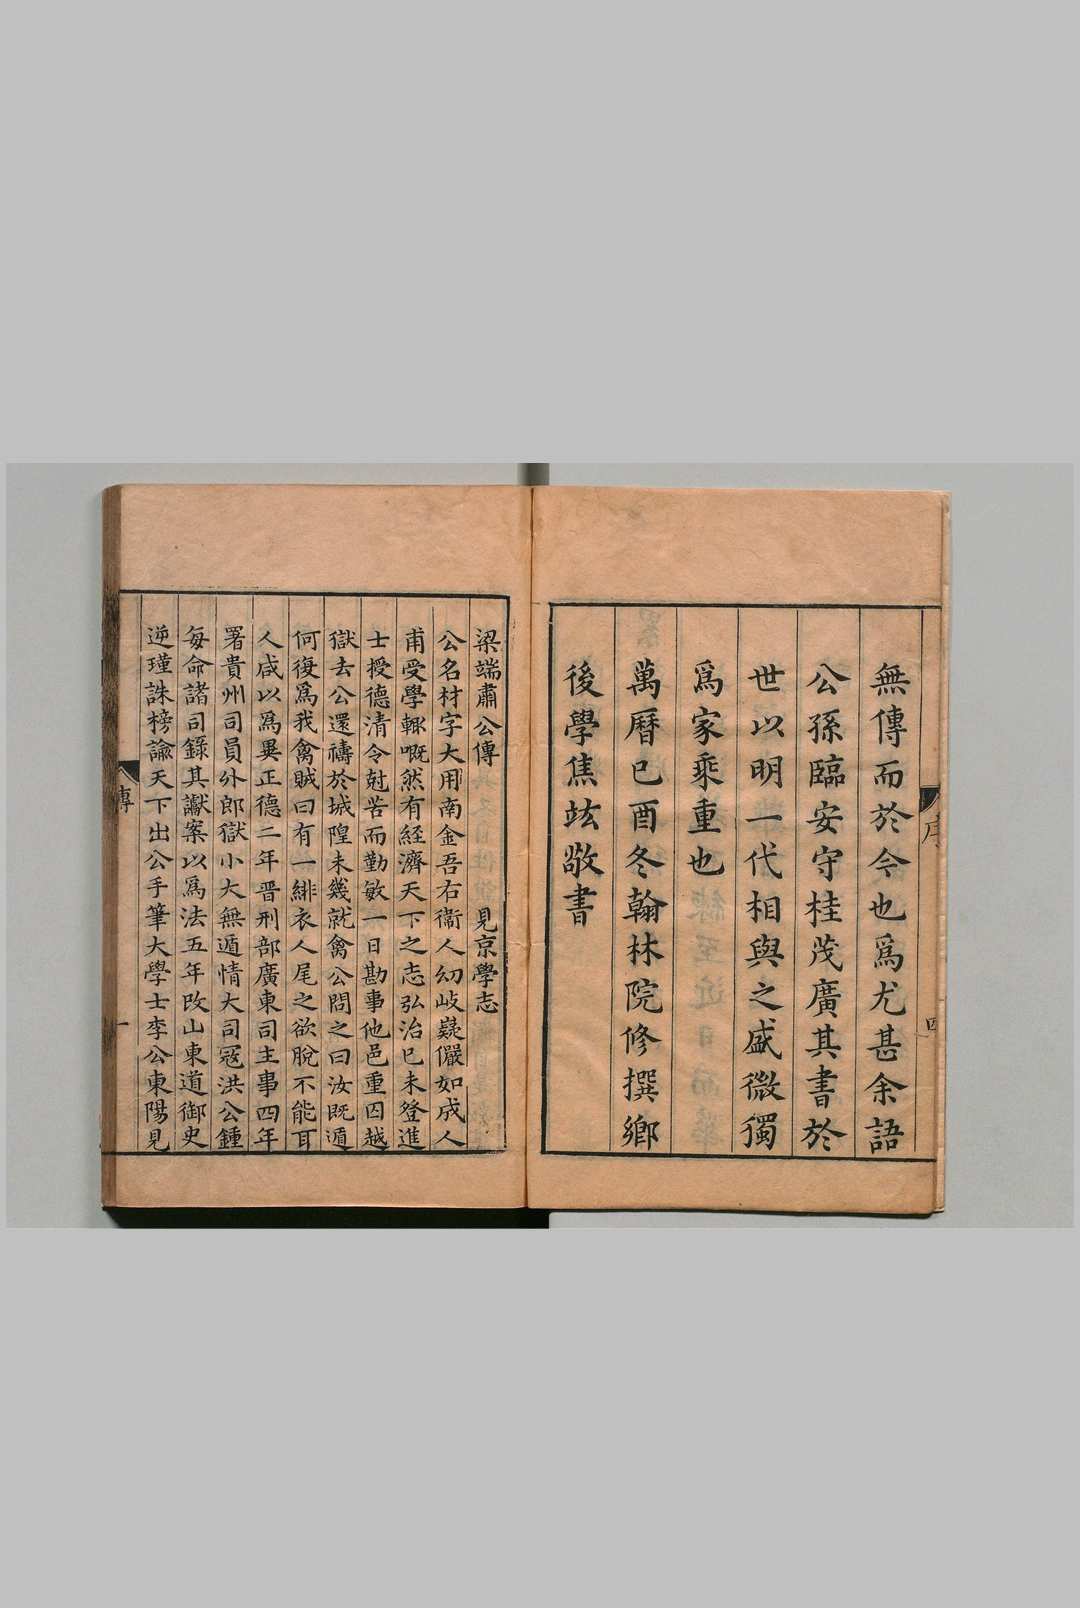 無傳而於今也爲尤甚余語
公孫臨安守桂茂廣其書於
世以明一代相與之盛微獨
爲家乘重也
萬曆已酉冬翰林院修撰鄉
後學焦竑敬書
序
四
梁端肅公傳 見京學志
公名材字大用南金吾右衞人幼岐嶷儼如成人
甫受學輙嘅然有經濟天下之志弘治已未登進
士授德清令尅苦而勤敏一日勘事他邑重囚越
獄去公還禱於城隍未幾就禽公問之曰汝既遁
何復爲我禽賊曰有一緋衣人尾之欲脫不能耳
人咸以爲異正德二年晋刑部廣東司主事四年
署貴州司員外郎獄小大無遁情大司寇洪公鍾
每命諸司錄其讞案以爲法五年改山東道御史
逆瑾誅榜諭天下出公手筆大學士李公東陽見
傳
一